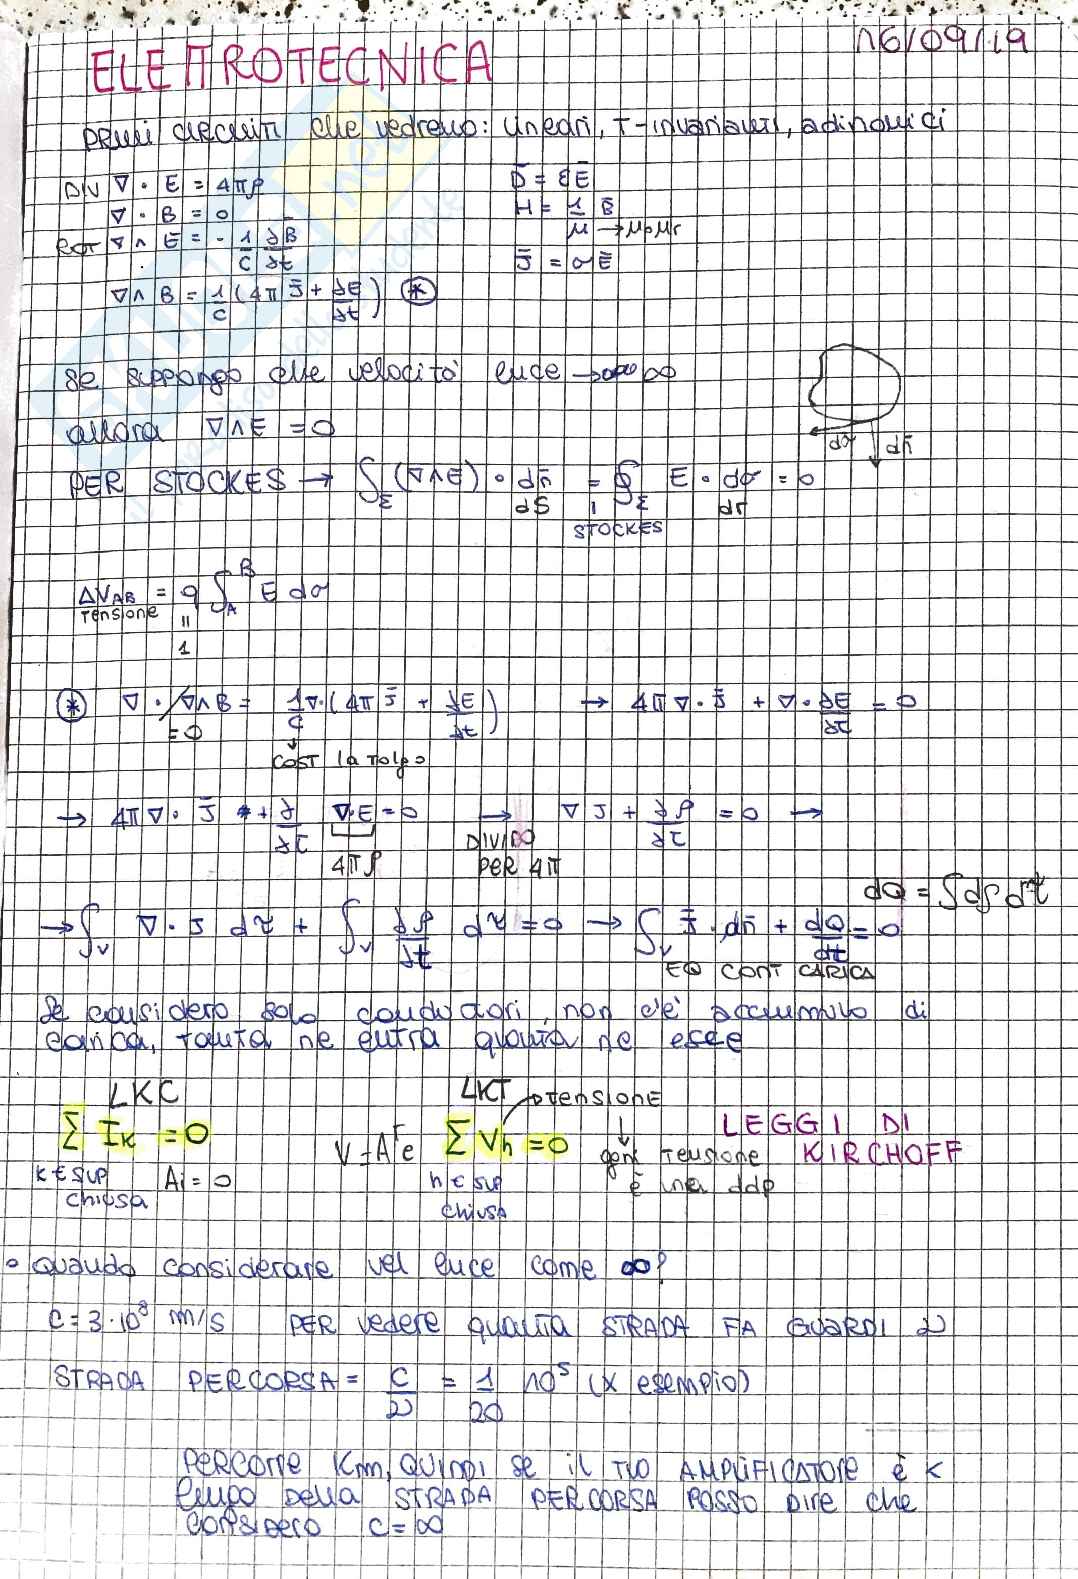 ELETTROTECNICA 16/09/19
PRIMI CIRCUITI che vedremo: lineari, T-invarianti, adinamici
DIV ∇ · E = 4πρ
∇ · B = 0
ROT ∇ ∧ Ē = - 1/c ∂B̄/∂t
∇ ∧ B = 1/c (4π J̄ + ∂E/∂t) *
D̄ = εĒ
H = 1/μ B̄
→ μ₀μr
J̄ = σĒ
se suppongo che velocità luce → ∞
allora ∇∧E = 0
dσ dn̄
PER STOCKES → ∫Σ (∇∧E) · dn̄ = ∮Σ E · dσ = 0
dS dr
STOCKES
ΔV_AB = q ∫_A^B E dσ
Tensione
=
1
* ∇ · ∇∧B = 1/c ∇·(4π J̄ + ∂E/∂t) → 4π ∇·J̄ + ∇·∂E/∂t = 0
=0
COST la tolgo
→ 4π ∇· J̄ + ∂/∂t ∇·E = 0 → ∇ J + ∂ρ/∂t = 0 →
4πρ
DIVIDO
PER 4π
dQ = ∫dρ dτ
→ ∫v ∇ · J dτ + ∫v ∂ρ/∂t dτ = 0 → ∫v J̄ · dn̄ + dQ/dt = 0
EQ CONT CARICA
Se considero solo conduttori, non c'è accumulo di
carica, tanta ne entra quanta ne esce
LKC
Σ Ik = 0
k ∈ sup
chiusa
Ai = 0
V = Aᵀe
LKT → TENSIONE
Σ Vh = 0
h ∈ sup
chiusa
↓
ogni tensione
è una ddp
LEGGI DI
KIRCHOFF
• Quando considerare vel luce come ∞?
c = 3·10⁸ m/s PER vedere quanta STRADA FA GUARDI ν
STRADA PERCORSA = c/ν = 1/20 10⁵ (x esempio)
PERCORRE Km, QUINDI se il TUO AMPLIFICATORE è <
lungo DELLA STRADA PERCORSA POSSO DIRE che
CONSIDERO c = ∞